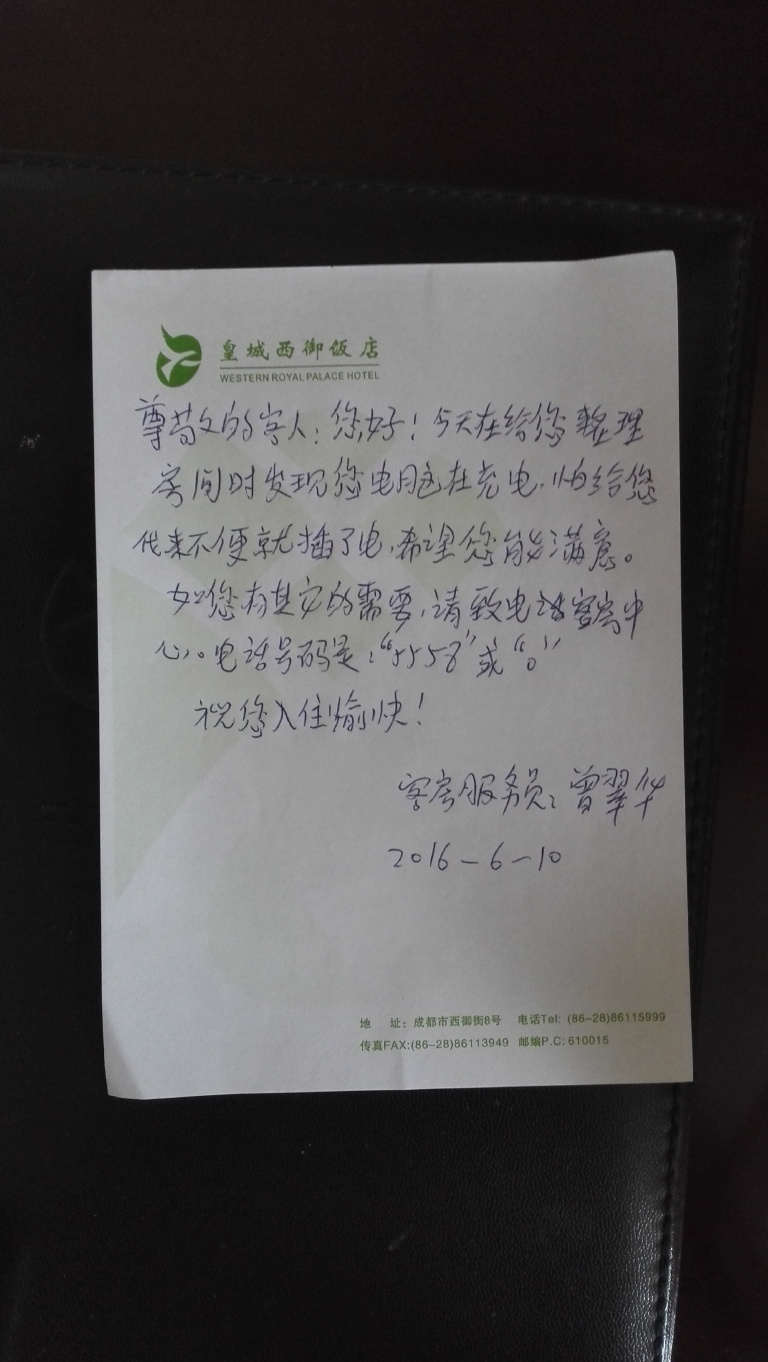 皇城西御饭店
WESTERN ROYAL PALACE HOTEL
尊敬的客人：您好！今天在给您整理
房间时发现您电脑在充电，怕给您
代来不便就插了电，希望您能满意。
如您有其它的需要，请致电话客房中
心。电话号码是：“5558”或“0”
祝您入住愉快！
客房服务员：曾翠华
2016-6-10
地 址：成都市西御街8号 电话Tel: (86-28)86115999
传真FAX:(86-28)86113949 邮编P.C: 610015